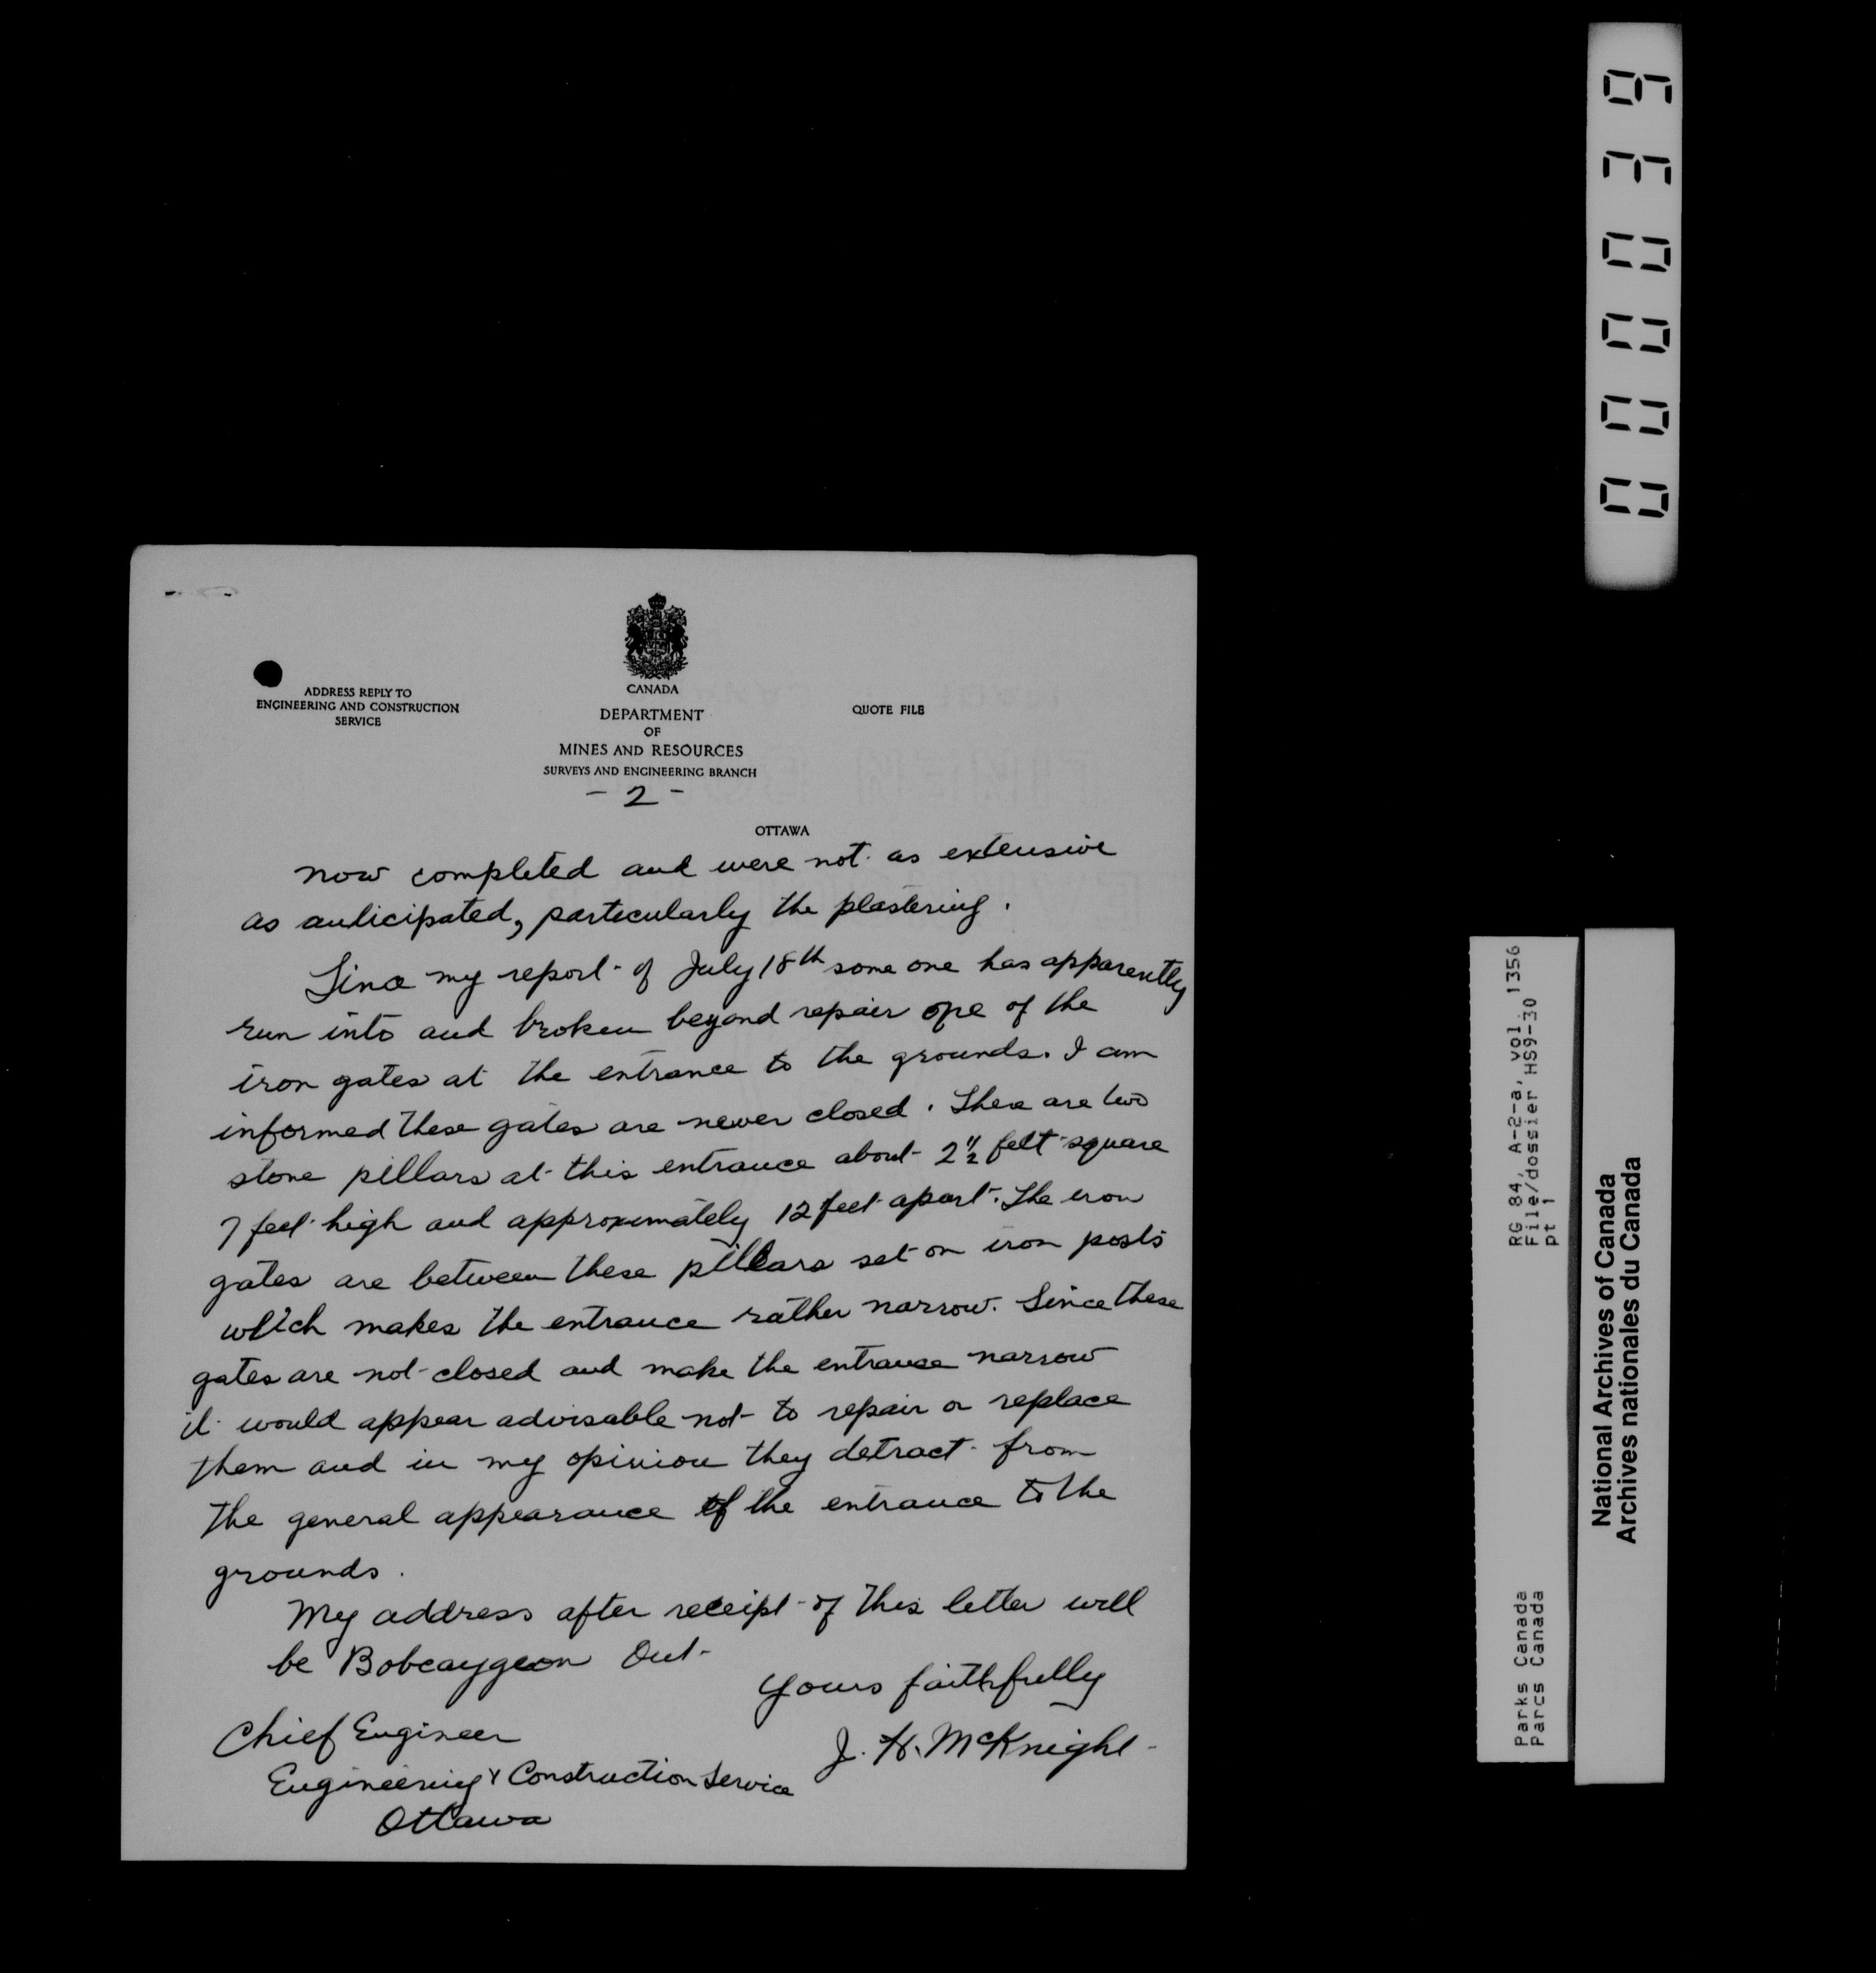 ADDRESS REPLY TO
ENGINEERING AND CONSTRUCTION
SERVICE
CANADA
DEPARTMENT
OF
MINES AND RESOURCES
SURVEYS AND ENGINEERING BRANCH
QUOTE FILE
- 2 -
OTTAWA
now completed and were not as extensive
as anticipated, particularly the plastering.
Since my report of July 18th some one has apparently
run into and broken beyond repair one of the
iron gates at the entrance to the grounds. I am
informed these gates are never closed. There are two
stone pillars at this entrance about 2 1/2 feet square
7 feet high and approximately 12 feet apart. The iron
gates are between these pillars set on iron posts
which makes the entrance rather narrow. Since these
gates are not closed and make the entrance narrow
it would appear advisable not to repair or replace
them and in my opinion they detract from
the general appearance of the entrance to the
grounds.
My address after receipt of this letter will
be Bobcaygeon Ont.
Yours faithfully
J. H. McKnight
Chief Engineer
Engineering & Construction Service
Ottawa
000039
RG 84, A-2-a, vol. 1356
File/dossier HS9-30
pt 1
Parks Canada
Parcs Canada
National Archives of Canada
Archives nationales du Canada